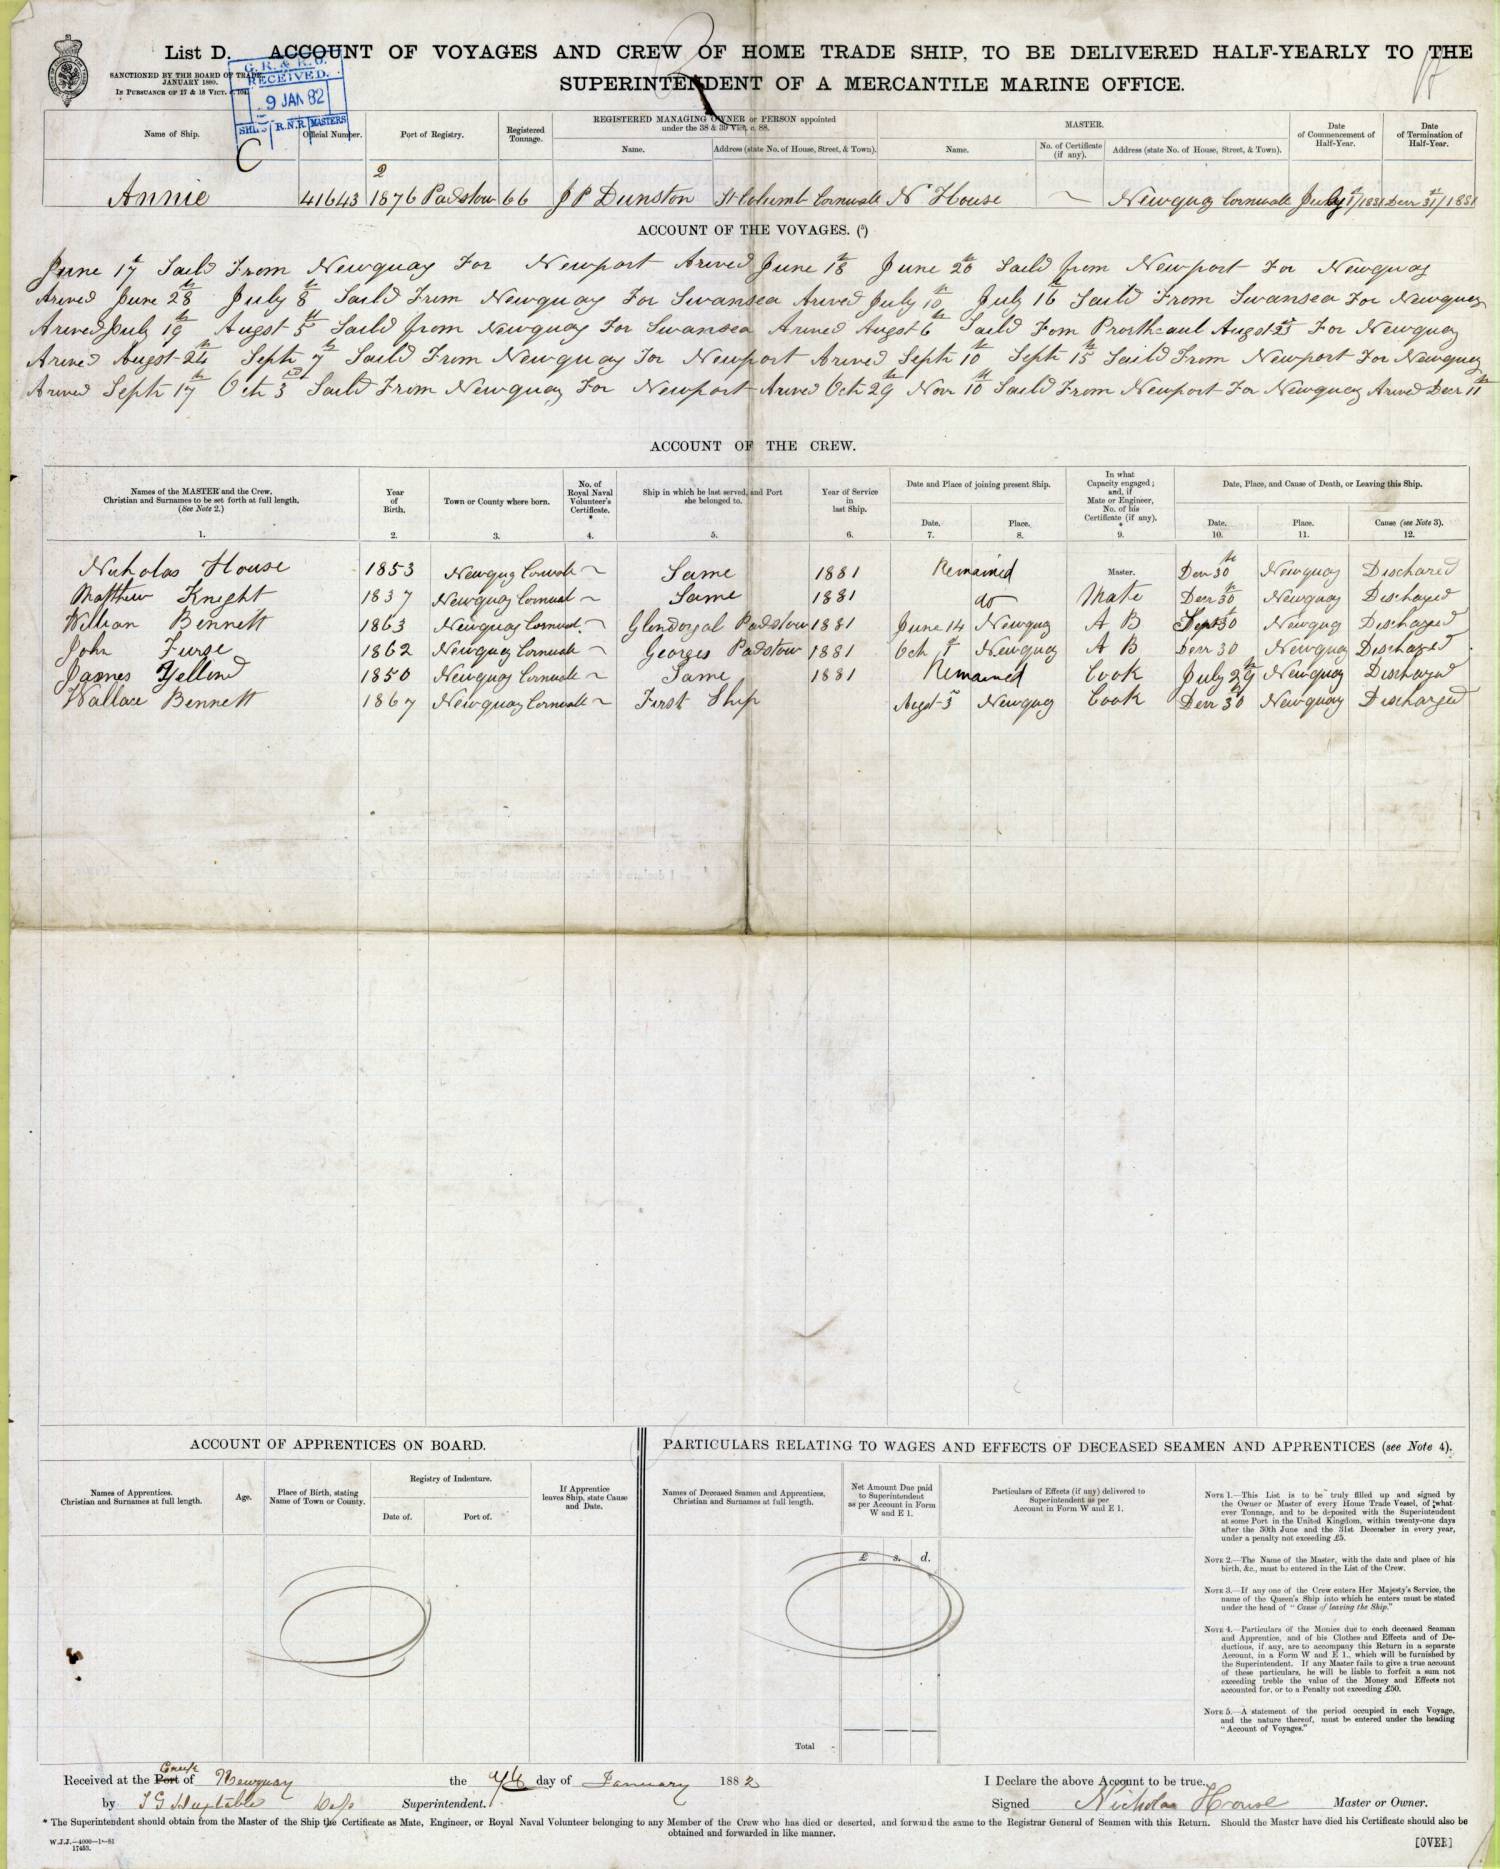 List D. ACCOUNT OF VOYAGES AND CREW OF HOME TRADE SHIP, TO BE DELIVERED HALF-YEARLY TO THE
SUPERINTENDENT OF A MERCANTILE MARINE OFFICE.
SANCTIONED BY THE BOARD OF TRADE
JANUARY 1880.
IN PURSUANCE OF 17 & 18 VICT. c. 104.
RECEIVED.
9 JAN 82
SHIPS R.N.R. MASTERS
C
Name of Ship. Official Number. Port of Registry. Registered Tonnage. REGISTERED MANAGING OWNER or PERSON appointed under the 38 & 39 Vict. c. 88. MASTER. Date of Commencement of Half-Year. Date of Termination of Half-Year.
Name. Address (state No. of House, Street, & Town). Name. No. of Certificate (if any). Address (state No. of House, Street, & Town).
2
Annie 41643 1876 Padstow 66 J P Dunston St Columb Cornwall N House ~ Newquay Cornwall July 1st/1881 Decr 31st/1881
ACCOUNT OF THE VOYAGES. (5)
June 17th Saild From Newquay For Newport Arived June 18th June 26th Saild from Newport For Newquay
Arived June 28th July 8th Saild From Newquay For Swansea Arived July 10th July 16th Saild From Swansea For Newquay
Arived July 19th Augst 5th Saild from Newquay For Swansea Arived Augst 6th Saild Fom Prorthcaul Augst 23rd For Newquay
Arived Augst 24th Septr 7th Saild From Newquay For Newport Arived Septr 10th Septr 15th Saild From Newport For Newquay
Arived Septr 17th Oct 3rd Saild From Newquay For Newport Arived Oct 29th Nov 10th Saild From Newport For Newquay Arived Decr 11th
ACCOUNT OF THE CREW.
Names of the MASTER and the Crew. Christian and Surnames to be set forth at full length. (See Note 2.) Year of Birth. Town or County where born. No. of Royal Naval Volunteer's Certificate. * Ship in which he last served, and Port she belonged to. Year of Service in last Ship. Date and Place of joining present Ship. In what Capacity engaged; and, if Mate or Engineer, No. of his Certificate (if any). * Date, Place, and Cause of Death, or Leaving this Ship.
Date. Place. Date. Place. Cause (see Note 3).
1. 2. 3. 4. 5. 6. 7. 8. 9. 10. 11. 12.
Nicholas House 1853 Newquay Cornwall ~ Same 1881 Remained Master. Decr 30th Newquay Dischared
Matthew Knight 1837 Newquay Cornwal ~ Same 1881 do Mate Decr 30th Newquay Dischaged
William Bennett 1863 Newquay Cornwal. ~ Glendorgal Padstow 1881 June 14 Newquay A B Septr 30 Newquay Dischaged
John Furse 1862 Newquay Cornwall ~ Georges Padstow 1881 Oct 1st Newquay A B Decr 30 Newquay Dischaged
James Yelland 1850 Newquay Cornwall ~ Same 1881 Remained Cook July 29th Newquay Dischaged
Wallace Bennett 1867 Newquay Cornwall ~ First Ship Augst 5 Newquay Cook Decr 30th Newquay Discharged
ACCOUNT OF APPRENTICES ON BOARD.
Names of Apprentices. Christian and Surnames at full length. Age. Place of Birth, stating Name of Town or County. Registry of Indenture. Date of. Port of. If Apprentice leaves Ship, state Cause and Date.
PARTICULARS RELATING TO WAGES AND EFFECTS OF DECEASED SEAMEN AND APPRENTICES (see Note 4).
Names of Deceased Seamen and Apprentices, Christian and Surnames at full length. Net Amount Due paid to Superintendent as per Account in Form W and E 1. Particulars of Effects (if any) delivered to Superintendent as per Account in Form W and E 1.
£ s. d.
Total -
NOTE 1.—This List is to be truly filled up and signed by
the Owner or Master of every Home Trade Vessel, of what-
ever Tonnage, and to be deposited with the Superintendent
at some Port in the United Kingdom, within twenty-one days
after the 30th June and the 31st December in every year,
under a penalty not exceeding £5.
NOTE 2.—The Name of the Master, with the date and place of his
birth, &c., must be entered in the List of the Crew.
NOTE 3.—If any one of the Crew enters Her Majesty's Service, the
name of the Queen's Ship into which he enters must be stated
under the head of "Cause of leaving the Ship."
NOTE 4.—Particulars of the Monies due to each deceased Seaman
and Apprentice, and of his Clothes and Effects and of De-
ductions, if any, are to accompany this Return in a separate
Account, in a Form W and E 1., which will be furnished by
the Superintendent. If any Master fails to give a true account
of these particulars, he will be liable to forfeit a sum not
exceeding treble the value of the Money and Effects not
accounted for, or to a Penalty not exceeding £50.
NOTE 5.—A statement of the period occupied in each Voyage,
and the nature thereof, must be entered under the heading
"Account of Voyages."
Received at the Port of Newquay the 7th day of January 1882
by Superintendent.
I Declare the above Account to be true.
Signed Nicholas House Master or Owner.
* The Superintendent should obtain from the Master of the Ship the Certificate as Mate, Engineer, or Royal Naval Volunteer belonging to any Member of the Crew who has died or deserted, and forward the same to the Registrar General of Seamen with this Return. Should the Master have died his Certificate should also be
obtained and forwarded in like manner.
[OVER]